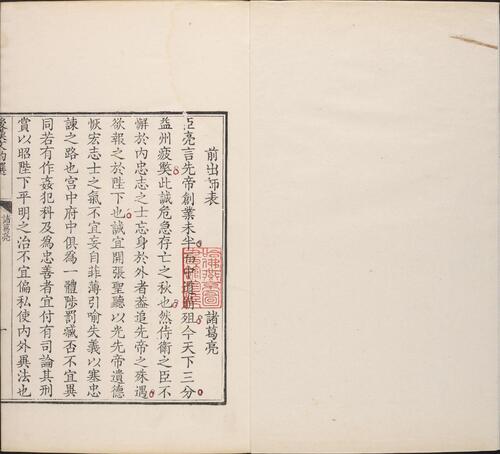 前出師表
諸葛亮
臣亮言先帝創業未半而中道崩殂今天下三分
益州疲弊此誠危急存亡之秋也然侍衛之臣不
懈於內忠志之士忘身於外者葢追先帝之殊遇
欲報之於陛下也誠宜開張聖聽以光先帝遺德
恢宏志士之氣不宜妄自菲薄引喻失義以塞忠
諫之路也宮中府中俱為一體陟罰臧否不宜異
同若有作姦犯科及為忠善者宜付有司論其刑
賞以昭陛下平明之治不宜偏私使內外異法也
諸葛亮
一